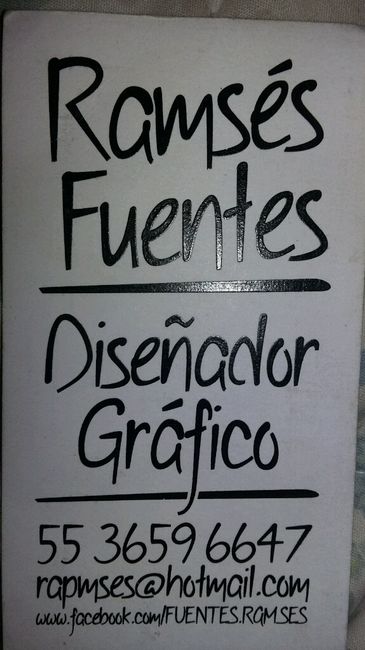 Ramsés
Fuentes
Diseñador
Gráfico
55 3659 6647
rapmses@hotmail.com
www.facebook.com/FUENTES.RAMSES